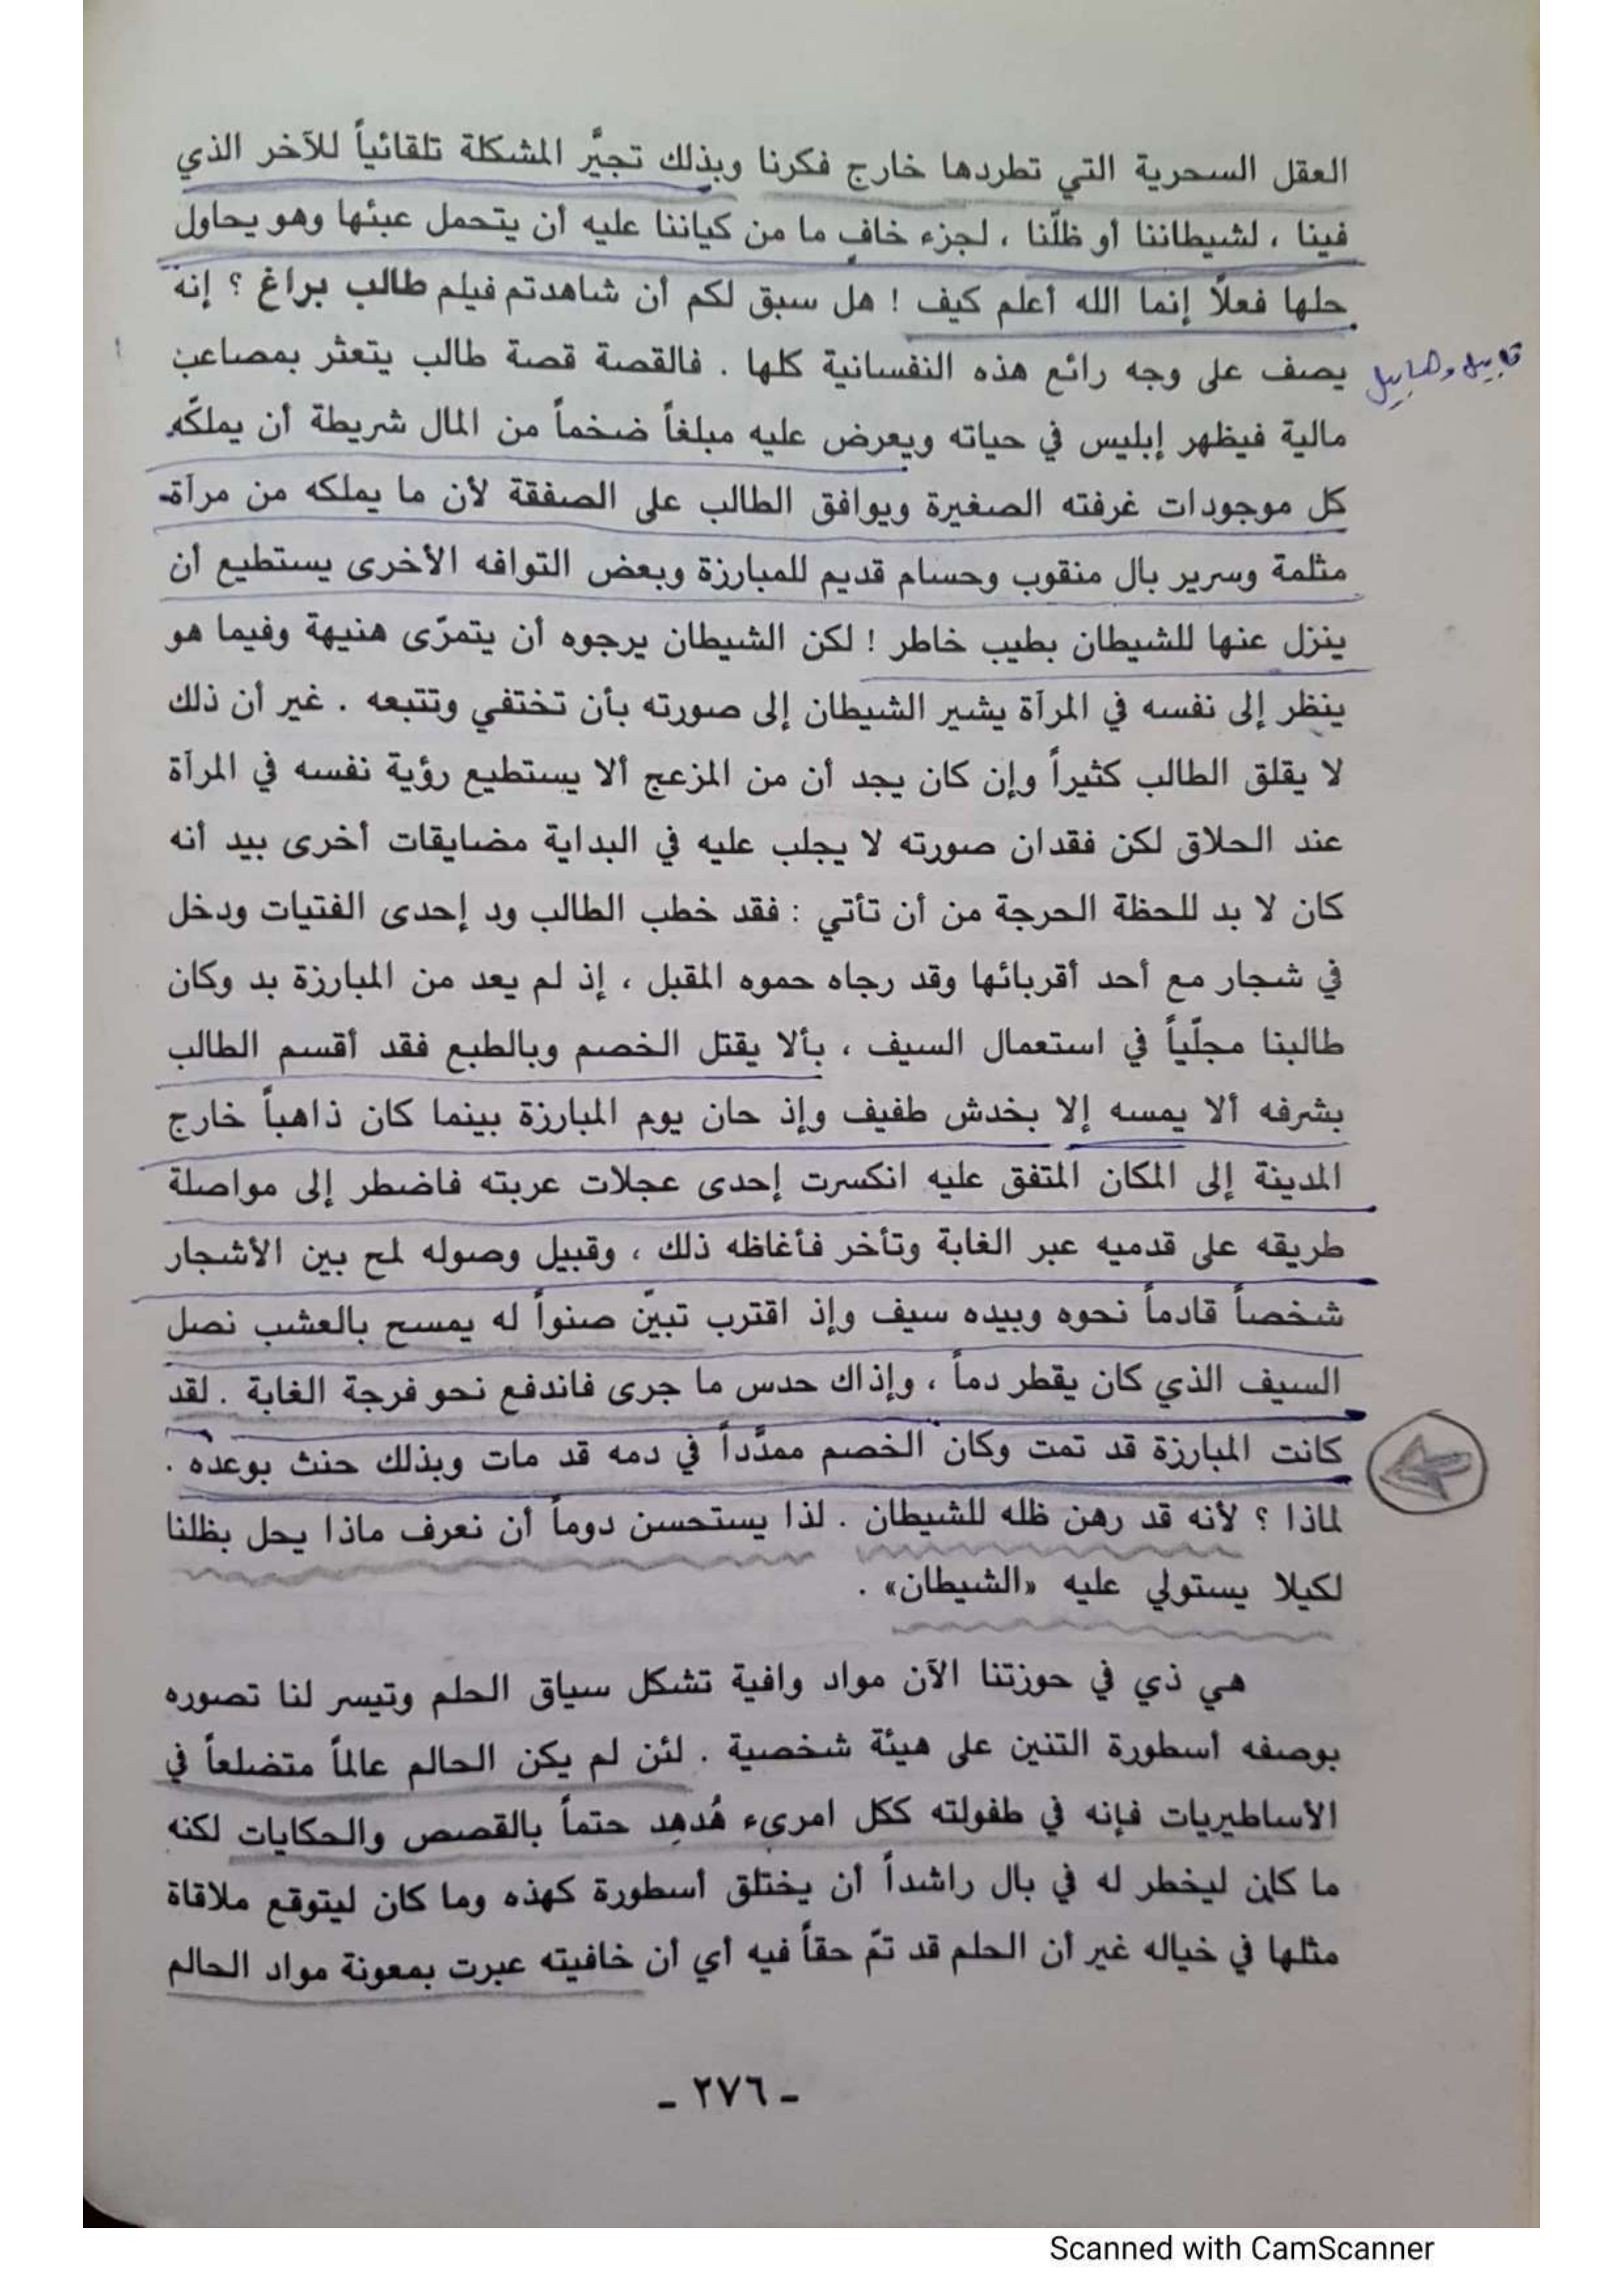 العقل السحرية التي تطردها خارج فكرنا وبذلك تجيَّر المشكلة تلقائياً للآخر الذي
فينا ، لشيطاننا أو ظلّنا ، لجزء خافٍ ما من كياننا عليه أن يتحمل عبئها وهو يحاول
حلها فعلاً إنما الله أعلم كيف ! هل سبق لكم أن شاهدتم فيلم طالب براغ ؟ إنه
يصف على وجه رائع هذه النفسانية كلها . فالقصة قصة طالب يتعثر بمصاعب
قابيل وهابيل
مالية فيظهر إبليس في حياته ويعرض عليه مبلغاً ضخماً من المال شريطة أن يملكّه
كل موجودات غرفته الصغيرة ويوافق الطالب على الصفقة لأن ما يملكه من مرآة
مثلمة وسرير بال منقوب وحسام قديم للمبارزة وبعض التوافه الأخرى يستطيع أن
ينزل عنها للشيطان بطيب خاطر ! لكن الشيطان يرجوه أن يتمرّى هنيهة وفيما هو
ينظر إلى نفسه في المرآة يشير الشيطان إلى صورته بأن تختفي وتتبعه . غير أن ذلك
لا يقلق الطالب كثيراً وإن كان يجد أن من المزعج ألا يستطيع رؤية نفسه في المرآة
عند الحلاق لكن فقدان صورته لا يجلب عليه في البداية مضايقات أخرى بيد أنه
كان لا بد للحظة الحرجة من أن تأتي : فقد خطب الطالب ود إحدى الفتيات ودخل
في شجار مع أحد أقربائها وقد رجاه حموه المقبل ، إذ لم يعد من المبارزة بد وكان
طالبنا مجلّياً في استعمال السيف ، بألا يقتل الخصم وبالطبع فقد أقسم الطالب
بشرفه ألا يمسه إلا بخدش طفيف وإذ حان يوم المبارزة بينما كان ذاهباً خارج
المدينة إلى المكان المتفق عليه انكسرت إحدى عجلات عربته فاضطر إلى مواصلة
طريقه على قدميه عبر الغابة وتأخر فأغاظه ذلك ، وقبيل وصوله لمح بين الأشجار
شخصاً قادماً نحوه وبيده سيف وإذ اقترب تبيّن صنواً له يمسح بالعشب نصل
السيف الذي كان يقطر دماً ، وإذاك حدس ما جرى فاندفع نحو فرجة الغابة . لقد
كانت المبارزة قد تمت وكان الخصم ممدَّداً في دمه قد مات وبذلك حنث بوعده .
لماذا ؟ لأنه قد رهن ظله للشيطان . لذا يستحسن دوماً أن نعرف ماذا يحل بظلنا
لكيلا يستولي عليه «الشيطان» .
هي ذي في حوزتنا الآن مواد وافية تشكل سياق الحلم وتيسر لنا تصوره
بوصفه أسطورة التنين على هيئة شخصية . لئن لم يكن الحالم عالماً متضلعاً في
الأساطيريات فإنه في طفولته ككل امرىء هُدهِد حتماً بالقصص والحكايات لكنه
ما كان ليخطر له في بال راشداً أن يختلق أسطورة كهذه وما كان ليتوقع ملاقاة
مثلها في خياله غير أن الحلم قد تمّ حقاً فيه أي أن خافيته عبرت بمعونة مواد الحالم
- ٢٧٦ -
Scanned with CamScanner